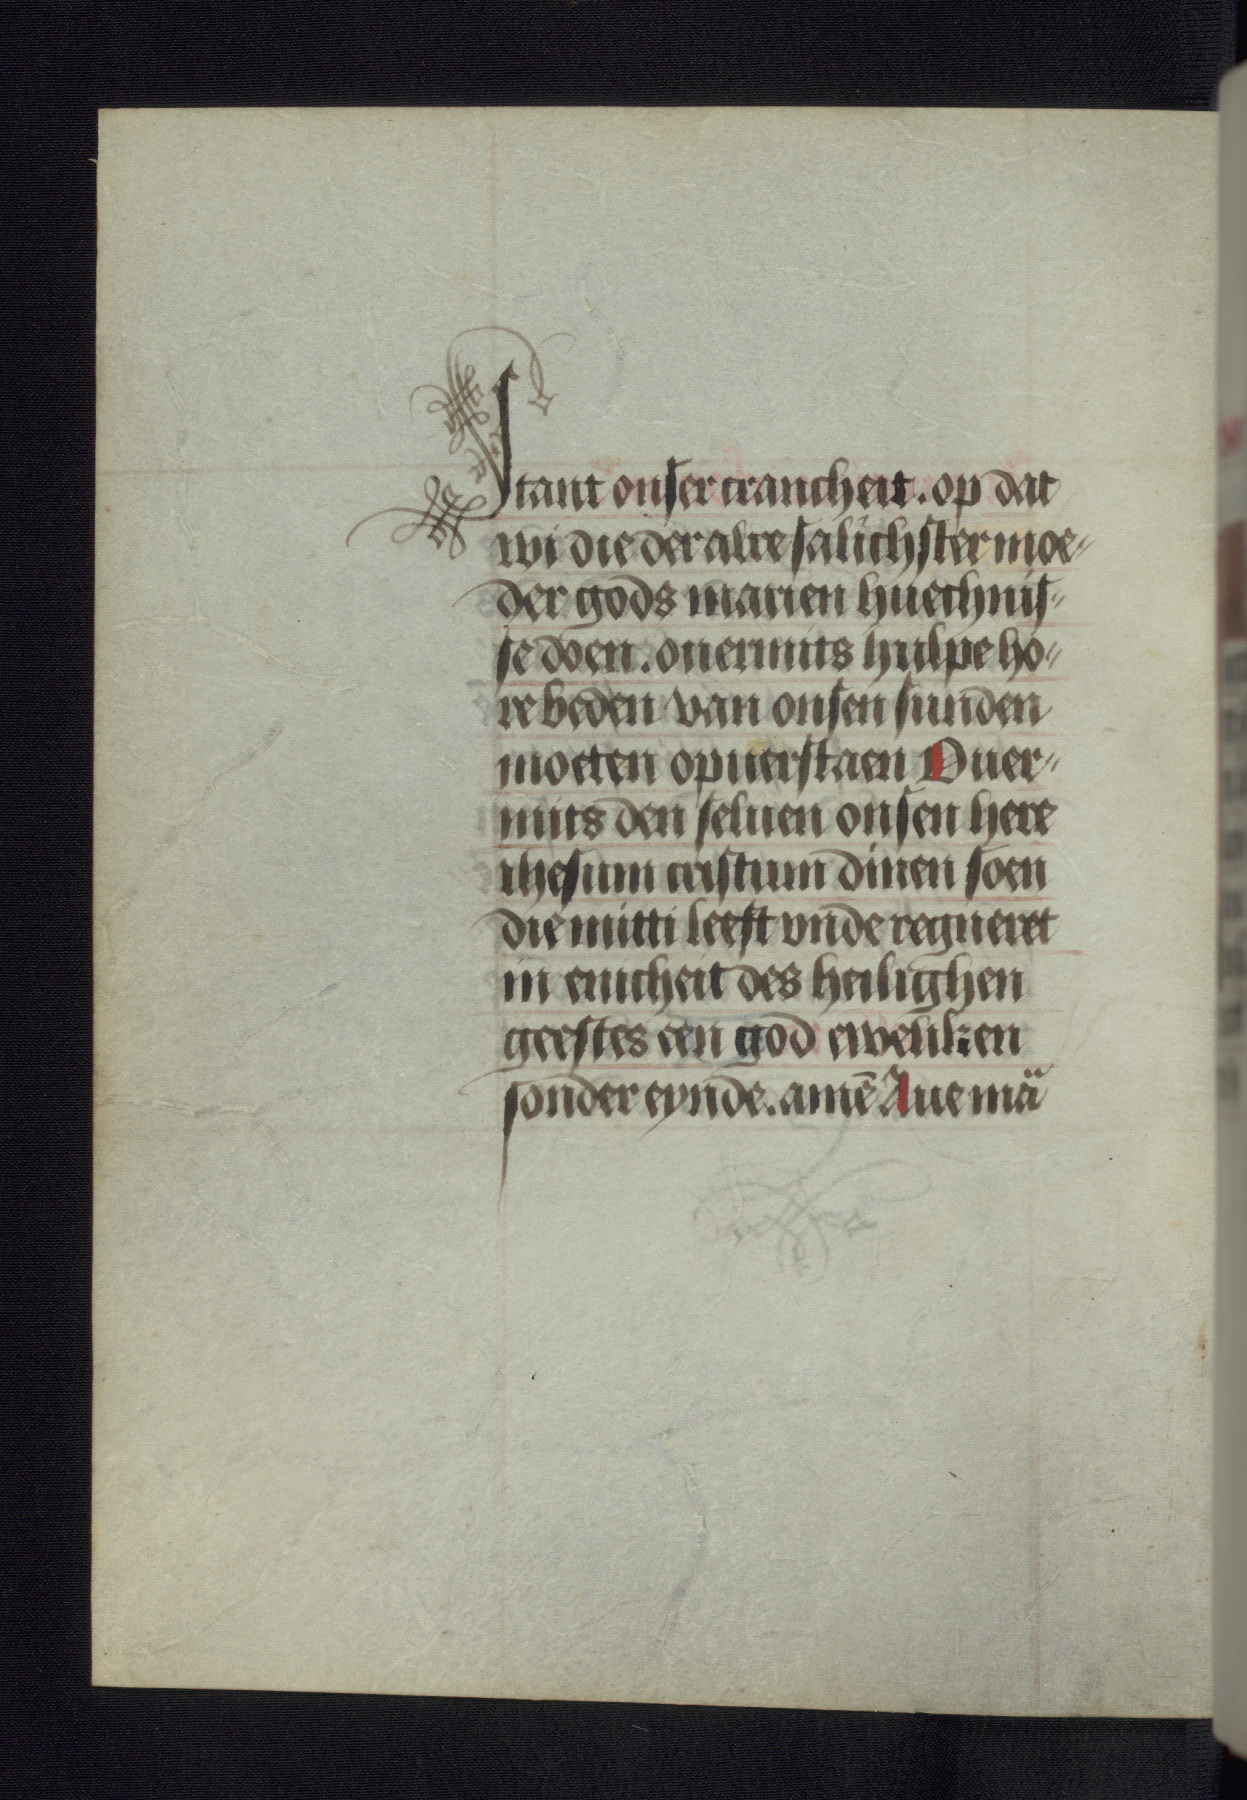 stant onser crancheit. op dat
wi die der alre salichster moe-
der gods marien huechnis-
se doen. ouermits hulpe ho-
re beden van onsen sunden
moeten opuerstaen Ouer-
mits den seluen onsen here
ihesum cristum dinen soen
die mitti leeft vnde regneret
in enicheit des heilighen
geestes een god eweliken
sonder eynde. amē Aue mā